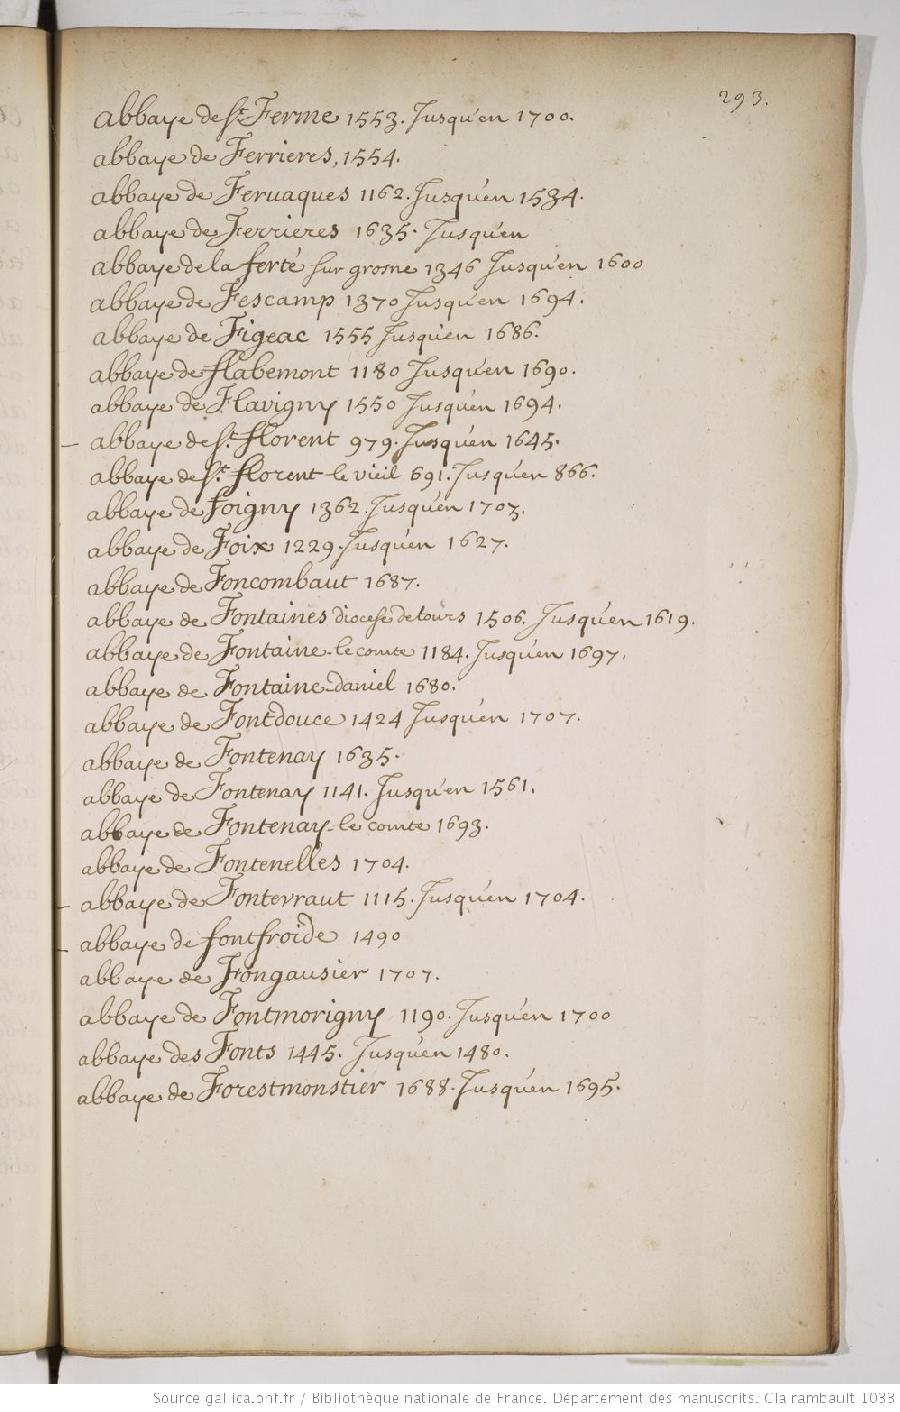 293.
abbaye de St. Ferme 1553. Jusqu'en 1700.
abbaye de Ferrieres, 1554.
abbaye de Feruaques 1162. Jusqu'en 1534.
abbaye de Ferrieres 1635. Jusqu'en
abbaye de la ferté sur grosne 1346 Jusqu'en 1600
abbaye de Fescamp 1370 Jusqu'en 1694.
abbaye de Figeac 1555 Jusqu'en 1686.
abbaye de flabemont 1180 Jusqu'en 1690.
abbaye de Flavigny 1550 Jusqu'en 1694.
abbaye de St. florent 979. Jusqu'en 1645.
abbaye de St. florent le vieil 691. Jusqu'en 866.
abbaye de foigny 1362. Jusqu'en 1703.
abbaye de Foix 1229. Jusqu'en 1627.
abbaye de Foncombaut 1687.
abbaye de Fontaines diocese de tours 1506. Jusqu'en 1619.
abbaye de Fontaine-le comte 1184. Jusqu'en 1697.
abbaye de Fontaine-daniel 1680.
abbaye de Fontdouce 1424 Jusqu'en 1707.
abbaye de Fontenay 1635.
abbaye de Fontenay 1141. Jusqu'en 1561.
abbaye de Fontenay-le comte 1693.
abbaye de Fontenelles 1704.
abbaye de Fonterraut 1115. Jusqu'en 1704.
abbaye de fontfroide 1490
abbaye de Fongausier 1707.
abbaye de Fontmorigny 1190. Jusqu'en 1700
abbaye des Fonts 1445. Jusqu'en 1480.
abbaye de Forestmonstier 1688. Jusqu'en 1695.
Source gallica.bnf.fr / Bibliothèque nationale de France. Département des manuscrits. Clairambault 1033